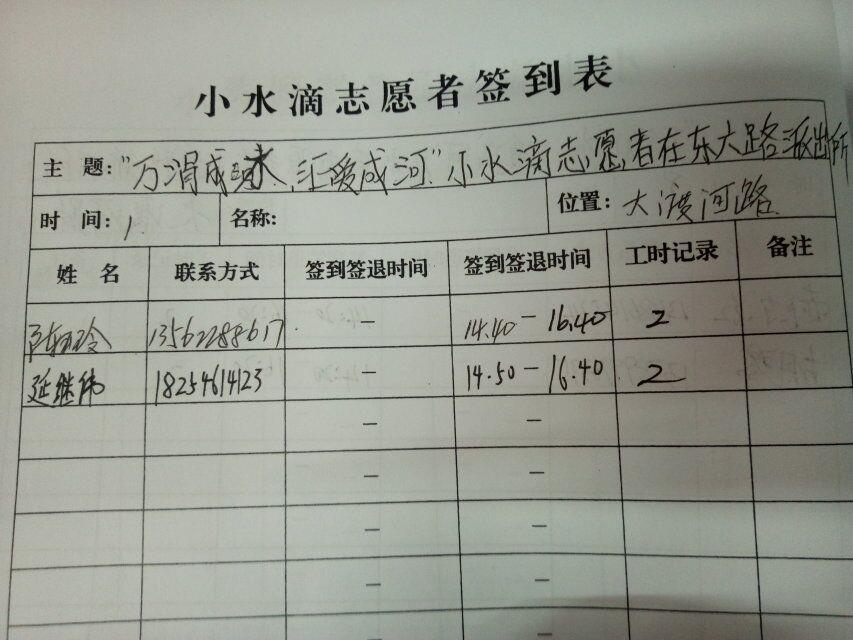 小水滴志愿者签到表
主 题："万涓成水、汇爱成河"小水滴志愿者在东大路派出所
时 间： 名称： 位置：大渡河路
姓 名 联系方式 签到签退时间 签到签退时间 工时记录 备注
13562288617 — 14.40 — 16.40 2
延继伟 18254614123 — 14.50 — 16.40 2
— —
— —
— —
— —